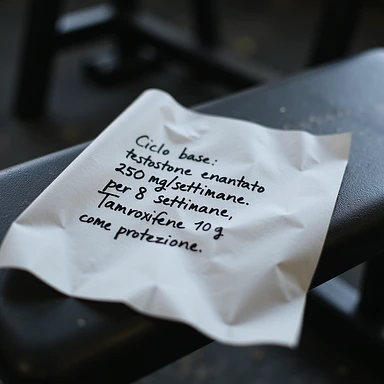 Ciclo base:
testostone enantato
250 mg/settimane.
per 8 settimane,
Tamroxifene 10g
come protezione.